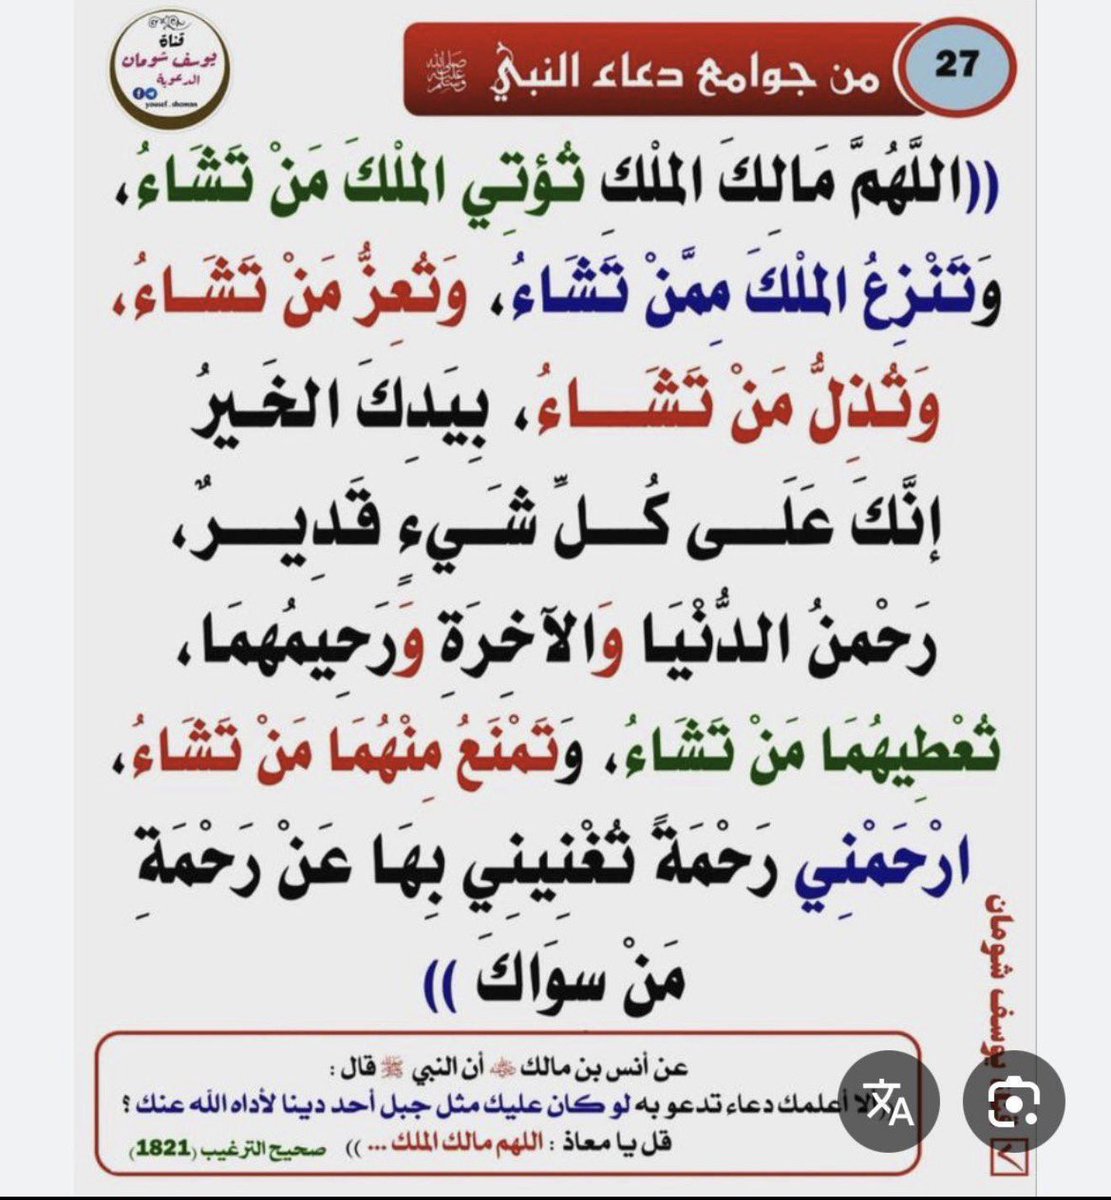 27
من جوامع دعاء النبي ﷺ
قناة
يوسف شومان
الدعوية
yousef.shoman
((اللَّهُمَّ مَالِكَ الملْكِ تُؤتِي الملْكَ مَنْ تَشَاءُ،
وَتَنْزِعُ الملْكَ مِمَّنْ تَشَاءُ، وَتُعِزُّ مَنْ تَشَـاءُ،
وَتُذِلُّ مَنْ تَشَـــاءُ، بِيَدِكَ الخَـيرُ
إنَّكَ عَلَـــى كُـــلِّ شَـــيءٍ قَـدِيـــرٌ،
رَحْمنُ الدُّنْيَا وَالآخِرَةِ وَرَحِيمُهمَا،
تُعْطِيهُمَا مَنْ تَشَاءُ، وَتَمْنَعُ مِنْهُمَا مَنْ تَشَاءُ،
ارْحَمْنِي رَحْمَةً تُغْنِينِي بِهَا عَنْ رَحْمَةِ
مَنْ سوَاكَ ))
عن أنس بن مالك ﵁ أن النبي ﷺ قال :
أعلمك دعاء تدعو به لو كان عليك مثل جبل أحد دينا لأداه الله عنك ؟
قل يا معاذ : اللهم مالك الملك ... )) صحيح الترغيب (1821)
يوسف شومان